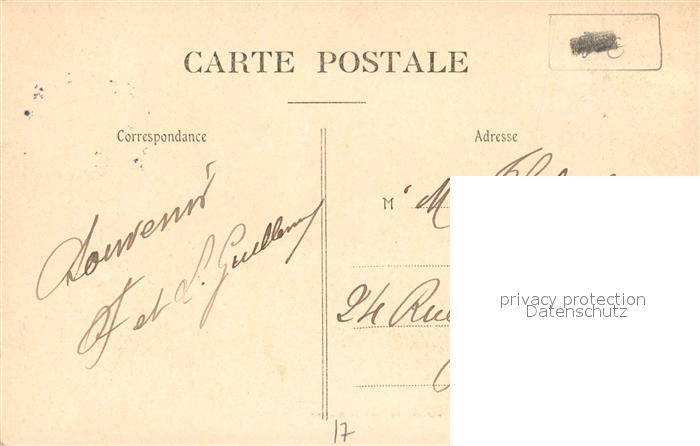 CARTE POSTALE
Correspondance
Adresse
Souvenir
F et L. Guillemy
M
M
24 Rue
privacy protection
Datenschutz
17